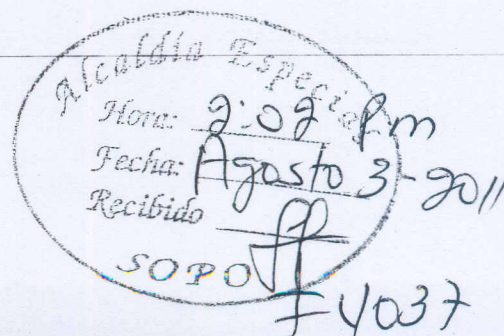 Alcaldía Especial
Hora: 2:02 Pm
Fecha: Agosto 3-2011
Recibido
SOPO
F 4037